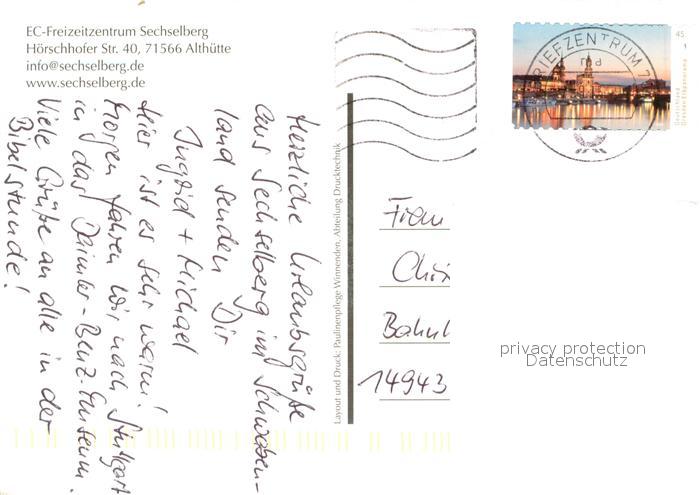 EC-Freizeitzentrum Sechselberg
Hörschhofer Str. 40, 71566 Althütte
info@sechselberg.de
www.sechselberg.de
Herzliche Urlaubsgrüße
aus Sechselberg im Schwaben-
land senden Dir
Ingrid + Michael
Hier ist es sehr warm!
Morgen fahren wir nach Stuttgart
in das Daimler-Benz-Museum.
Viele Grüße an alle in der
Bibelstunde!
Layout und Druck: Paulinenpflege Winnenden, Abteilung Drucktechnik
BRIEFZENTRUM 7
45
Deutschland
Dresden Elbpanorama
Frau
Chri
Bahn
14943
privacy protection
Datenschutz